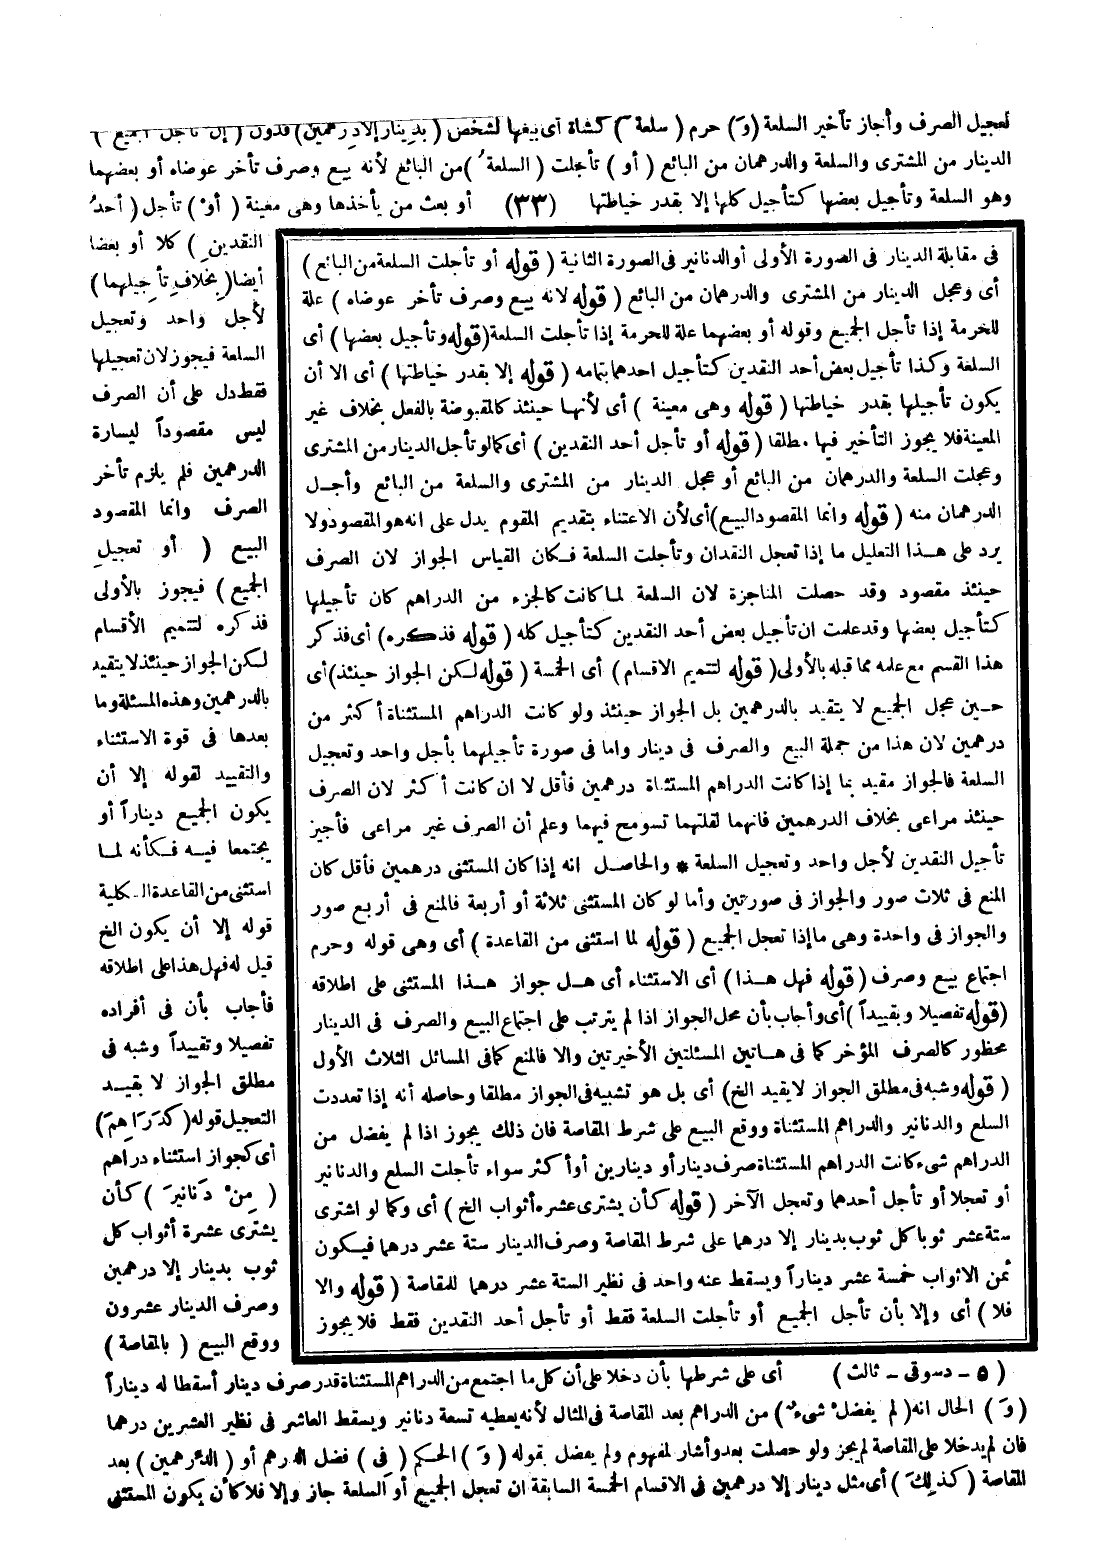 تعجيل الصرف وأجاز تأخير السلعة (وَ) حرم (سلعة) كشاة أى بيعها لشخص (بدِينار إلا دِرهمين) فدون (إن تأجل الجميع)
الدينار من المشترى والسلعة والدرهمان من البائع (أو) تأجلت (السلعةُ) من البائع لأنه بيع وصرف تأخر عوضاه أو بعضهما
وهو السلعة وتأجيل بعضها كتأجيل كلها إلا بقدر خياطتها (٣٣) أو بعث من يأخذها وهى معينة (أوْ) تأجل (أحدُ
النقدينِ) كلا أو بعضا
أيضا (بخلافِ تأجِيلهما)
لأجل واحد وتعجيل
السلعة فيجوز لان تعجيلها
فقط دل على أن الصرف
ليس مقصوداً ليسارة
الدرهمين فلم يلزم تأخر
الصرف وانما المقصود
البيع (أو تعجيلِ
الجميع) فيجوز بالأولى
فذكره لتتميم الأقسام
لكن الجواز حينئذ لا يتقيد
بالدرهمين وهذه المسئلة وما
بعدها فى قوة الاستثناء
والتقييد لقوله إلا أن
يكون الجميع ديناراً أو
يجتمعا فيه فكأنه لما
استثنى من القاعدة الكلية
قوله إلا أن يكون الخ
قيل له فهل هذا على اطلاقه
فأجاب بأن فى أفراده
تفصيلا وتقييداً وشبه فى
مطلق الجواز لا بقيد
التعجيل قوله (كدَرَاهِمَ)
أى كجواز استثناء دراهم
(مِنْ دَنانيرَ) كأن
يشترى عشرة أثواب كل
ثوب بدينار إلا درهمين
وصرف الدينار عشرون
ووقع البيع (بالمقاصة)
فى مقابلة الدينار فى الصورة الأولى أو الدنانير فى الصورة الثانية (قوله أو تأجلت السلعة من البائع)
أى وعجل الدينار من المشترى والدرهمان من البائع (قوله لانه بيع وصرف تأخر عوضاه) علة
للحرمة إذا تأجل الجميع وقوله أو بعضهما علة للحرمة إذا تأجلت السلعة (قوله وتأجيل بعضها) أى
السلعة وكذا تأجيل بعض أحد النقدين كتأجيل احدهما بتمامه (قوله إلا بقدر خياطتها) أى الا أن
يكون تأجيلها بقدر خياطتها (قوله وهى معينة) أى لأنها حينئذ كالمقبوضة بالفعل بخلاف غير
المعينة فلا يجوز التأخير فيها مطلقا (قوله أو تأجل أحد النقدين) أى كما لو تأجل الدينار من المشترى
وعجلت السلعة والدرهمان من البائع أو عجل الدينار من المشترى والسلعة من البائع وأجل
الدرهمان منه (قوله وانما المقصود البيع) أى لأن الاعتناء بتقديم المقوم يدل على انه هو المقصود ولا
يرد على هذا التعليل ما إذا تعجل النقدان وتأجلت السلعة فكان القياس الجواز لان الصرف
حينئذ مقصود وقد حصلت المناجزة لان السلعة لما كانت كالجزء من الدراهم كان تأجيلها
كتأجيل بعضها وقد علمت ان تأجيل بعض أحد النقدين كتأجيل كله (قوله فذكره) أى فذكر
هذا القسم مع علمه مما قبله بالأولى (قوله لتتميم الاقسام) أى الخمسة (قوله لكن الجواز حينئذ) أى
حين عجل الجميع لا يتقيد بالدرهمين بل الجواز حينئذ ولو كانت الدراهم المستثناة أكثر من
درهمين لان هذا من جملة البيع والصرف فى دينار واما فى صورة تأجيلهما بأجل واحد وتعجيل
السلعة فالجواز مقيد بما إذا كانت الدراهم المستثناة درهمين فأقل لا ان كانت أكثر لان الصرف
حينئذ مراعى بخلاف الدرهمين فانهما لقلتهما تسومح فيهما وعلم أن الصرف غير مراعى فأجيز
تأجيل النقدين لأجل واحد وتعجيل السلعة * والحاصل انه إذا كان المستثنى درهمين فأقل كان
المنع فى ثلاث صور والجواز فى صورتين وأما لو كان المستثنى ثلاثة أو أربعة فالمنع فى أربع صور
والجواز فى واحدة وهى ما إذا تعجل الجميع (قوله لما استثنى من القاعدة) أى وهى قوله وحرم
اجتماع بيع وصرف (قوله فهل هذا) أى الاستثناء أى هل جواز هذا المستثنى على اطلاقه
(قوله تفصيلا وتقييداً) أى وأجاب بأن محل الجواز اذا لم يترتب على اجتماع البيع والصرف فى الدينار
محظور كالصرف المؤخر كما فى هاتين المسئلتين الأخيرتين والا فالمنع كما فى المسائل الثلاث الأول
(قوله وشبه فى مطلق الجواز لا بقيد الخ) أى بل هو تشبيه فى الجواز مطلقا وحاصله أنه إذا تعددت
السلع والدنانير والدراهم المستثناة ووقع البيع على شرط المقاصة فان ذلك يجوز اذا لم يفضل من
الدراهم شىء كانت الدراهم المستثناة صرف دينار أو دينارين أو أكثر سواء تأجلت السلع والدنانير
أو تعجلا أو تأجل أحدهما وتعجل الآخر (قوله كأن يشترى عشره أثواب الخ) أى وكما لو اشترى
ستة عشر ثوبا كل ثوب بدينار إلا درهما على شرط المقاصة وصرف الدينار ستة عشر درهما فيكون
ثمن الاثواب خمسة عشر ديناراً ويسقط عنه واحد فى نظير الستة عشر درهما للمقاصة (قوله والا
فلا) أى وإلا بأن تأجل الجميع أو تأجلت السلعة فقط أو تأجل أحد النقدين فقط فلا يجوز
(٥ - دسوقى - ثالث) أى على شرطها بأن دخلا على أن كل ما اجتمع من الدراهم المستثناة قدر صرف دينار أسقطا له ديناراً
(وَ) الحال انه (لم يفضلْ شىءٌ) من الدراهم بعد المقاصة فى المثال لأنه يعطيه تسعة دنانير ويسقط العاشر فى نظير العشرين درهما
فان لم يدخلا على المقاصة لم يجز ولو حصلت بعد وأشار لمفهوم ولم يفضل بقوله (وَ) الحكم (فى) فضل الدرهم أو (الدِّرهمين) بعد
المقاصة (كذلِكَ) أى مثل دينار إلا درهمين فى الاقسام الخمسة السابقة ان تعجل الجميع أو السلعة جاز وإلا فلا كأن يكون المستثنى